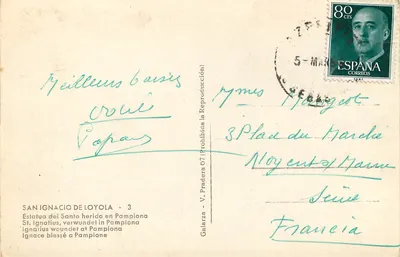 80
CTS
ESPAÑA
CORREOS
5-MAR
Meilleurs baisers
Papa
Mmes Margot
3 Place du Marché
Nogent s/Marne
Seine
Francia
SAN IGNACIO DE LOYOLA - 3
Estatua del Santo herido en Pamplona
St. Ignatius, verwundet in Pamplona
Ignatius wounded at Pamplona
Ignace blessé a Pamplone
Galarza - V. Pradera 67 (Prohibida la Reproducción)